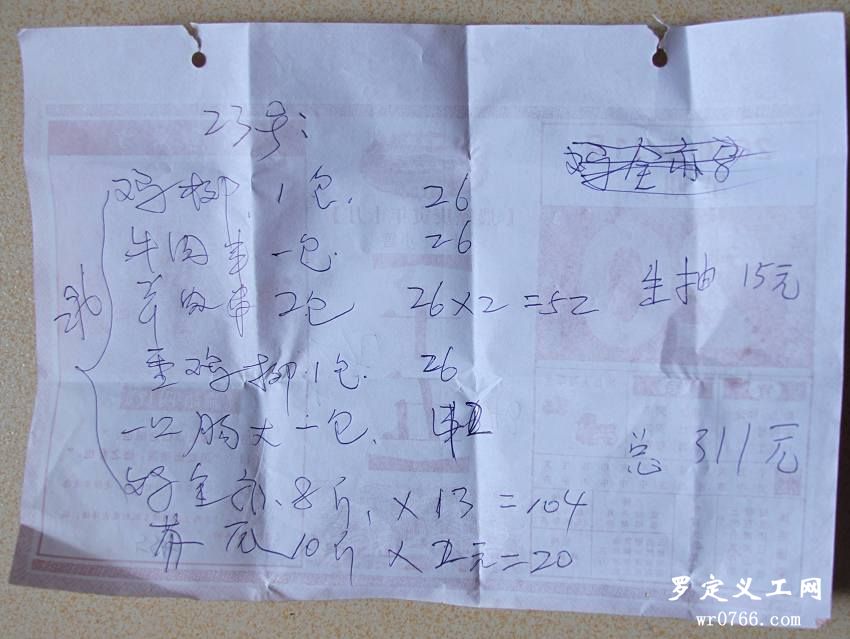 23号:
鸡柳.1包. 26
牛肉串一包. 26
肉串2包 26×2=52
鸡柳.1包. 26
一口肠大一包. 42
全 8斤, ×13=104
瓜 10斤×2元=20
生抽 15元
总 311元
罗定义工网
wr0766.com